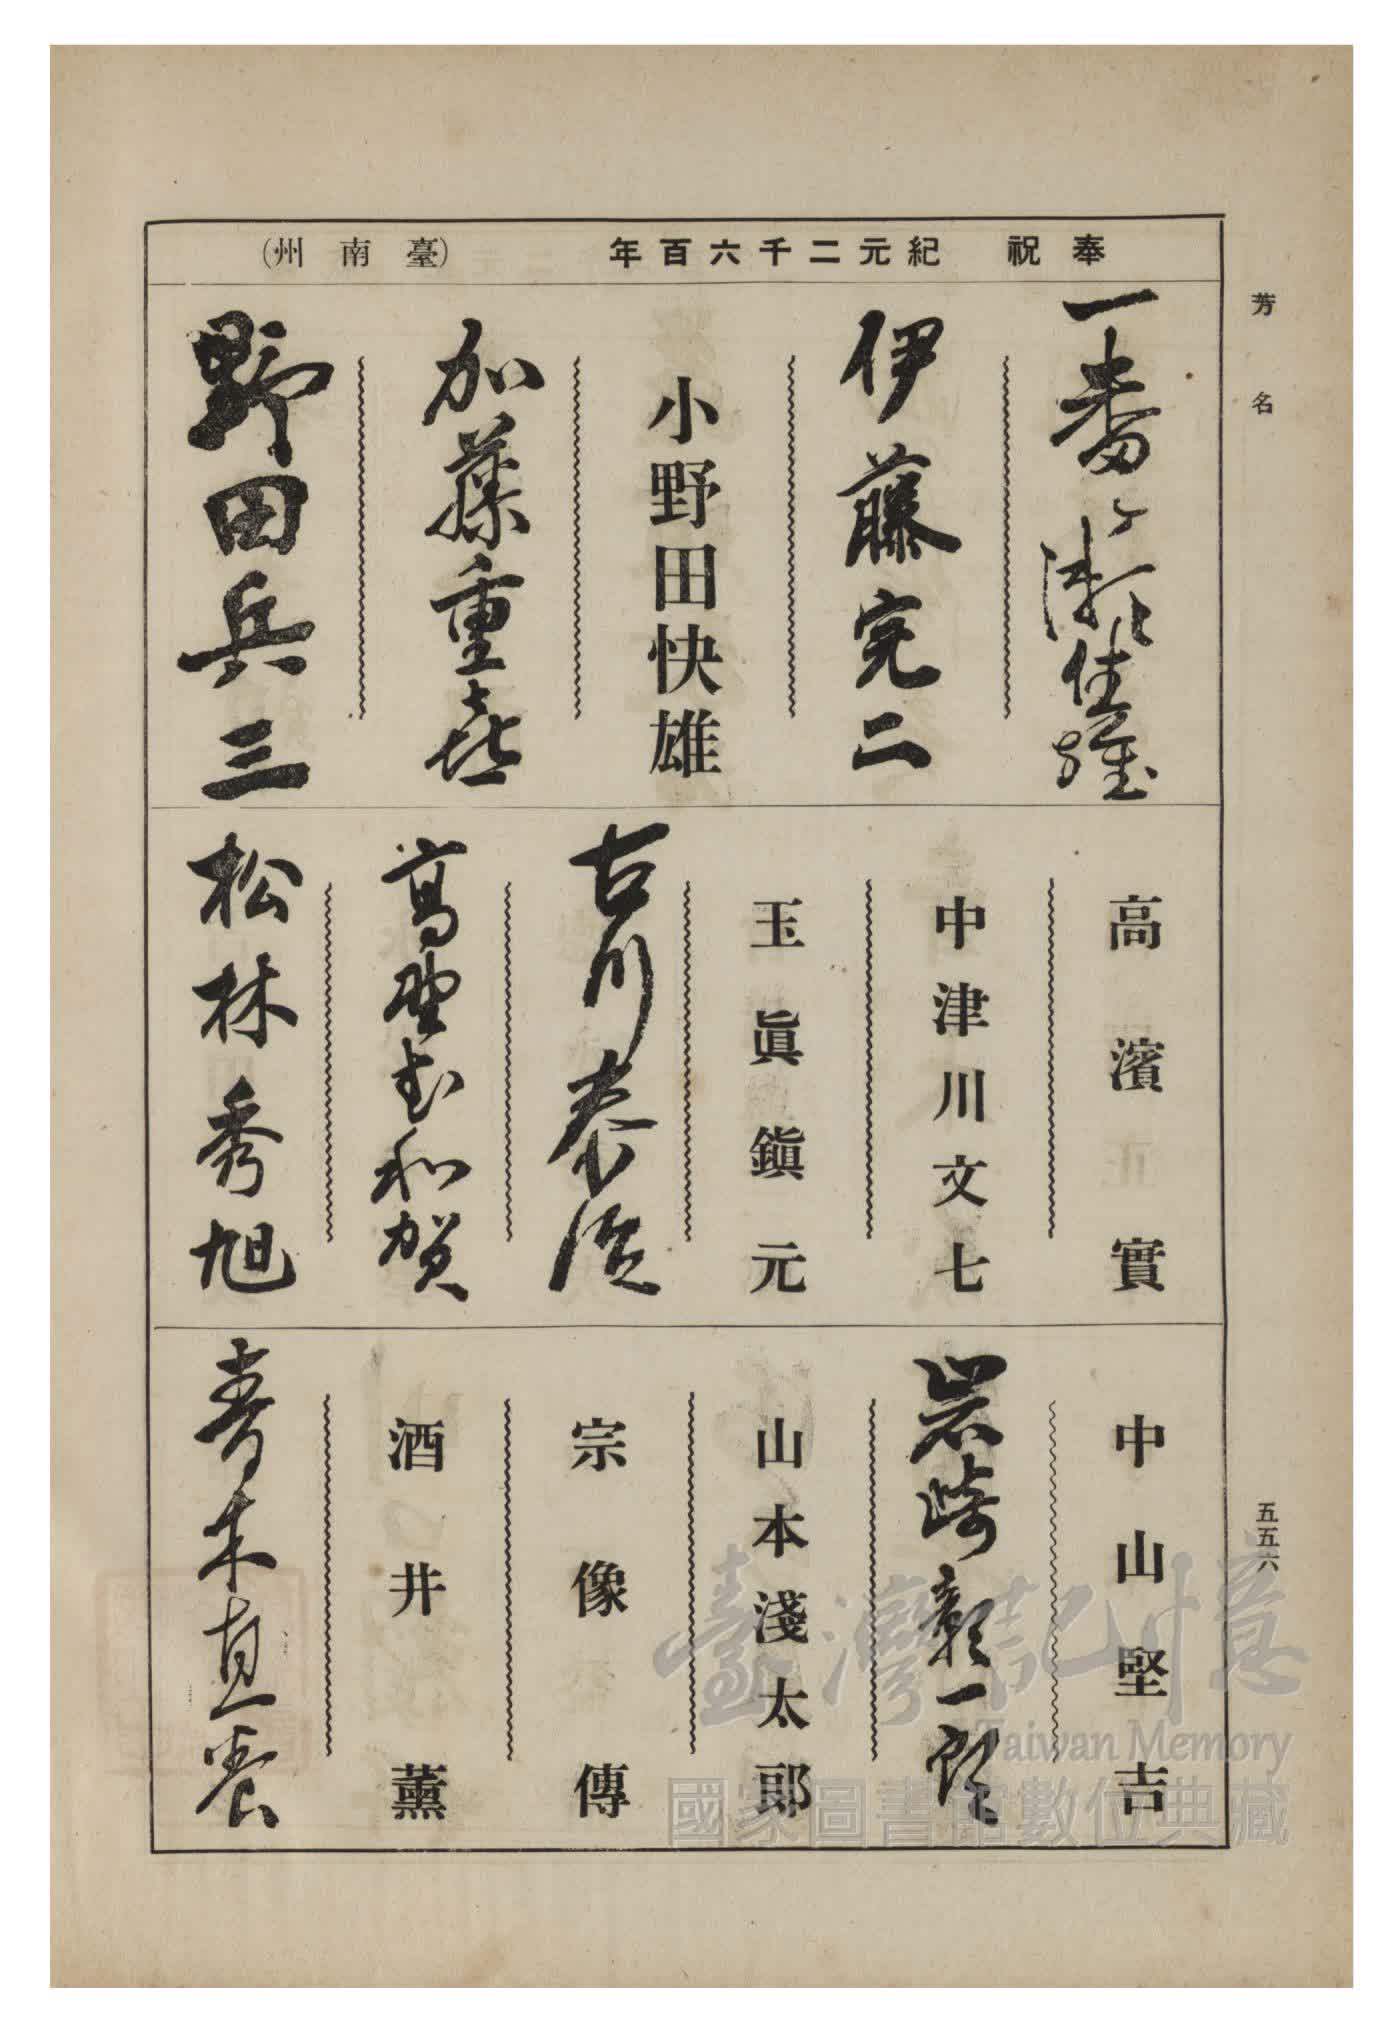 芳名
奉祝 紀元二千六百年 (臺南州)
一番ヶ瀬佳雄
伊藤完二
小野田快雄
加藤重喜
野田兵三
高濱實
中津川文七
玉眞鎭元
古川泰治
高野和賀
松林秀旭
中山堅吉
岩崎彰一郎
山本淺太郎
宗像傳
酒井薰
青木直養
五五六
臺灣記憶
Taiwan Memory
國家圖書館數位典藏